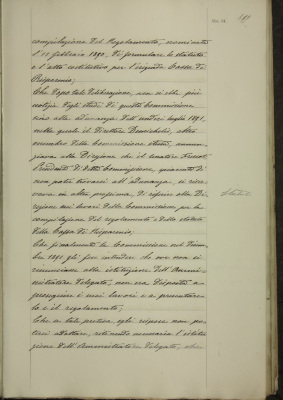 compilazione del Regolamento, nominata
l'11 febbraio 1890, di formulare lo statuto
e l'atto costitutivo per l'erigenda Cassa di
Risparmio;
Che dopo tale deliberazione, non si ebbe più
notizie degli studi di questa Commissione
sino alla adunanza dell'undici luglio 1891,
nella quale il Direttore altro
membro della Commissione stessa, annun-
ziava alla Direzione che il Senatore
Presidente di detta Commissione, quantunque
non potè trovarsi all'adunanza, si riser-
vava in altra prossima, di riferire alla Di-
rezione sui lavori della Commissione per la
compilazione del regolamento e dello statuto
della Cassa di Risparmio;
Che finalmente la Commissione nel Novem-
bre 1891 gli fece intendere che ove non si
rinunciasse alla istituzione dell'Ammini-
stratore Delegato, non era disposta a
proseguire i suoi lavori e a presentare
la e il regolamento;
Che a tale pretesa egli rispose non po-
tersi adattare, ritenendo necessaria l'istitu-
zione dell'Amministratore Delegato,